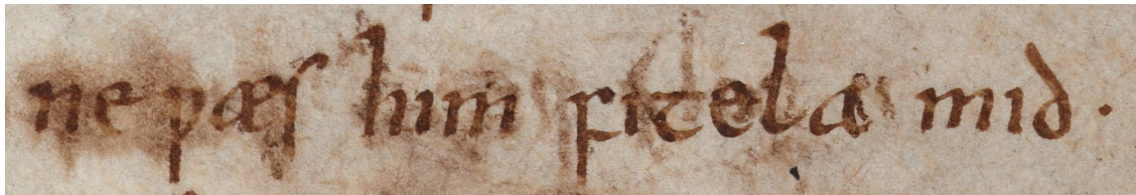 ne ƿæs him fitela mid.